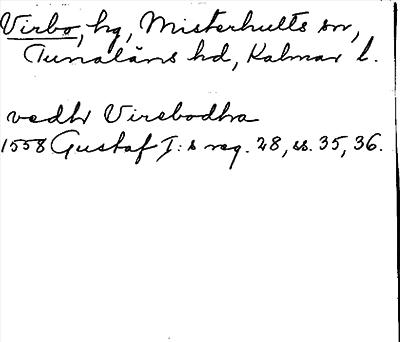 Virbo, hg, Misterhults sn,
Tunaläns hd, Kalmar l.
vedhr Virebodha
1558 Gustaf I:s reg. 28, ss. 35, 36.